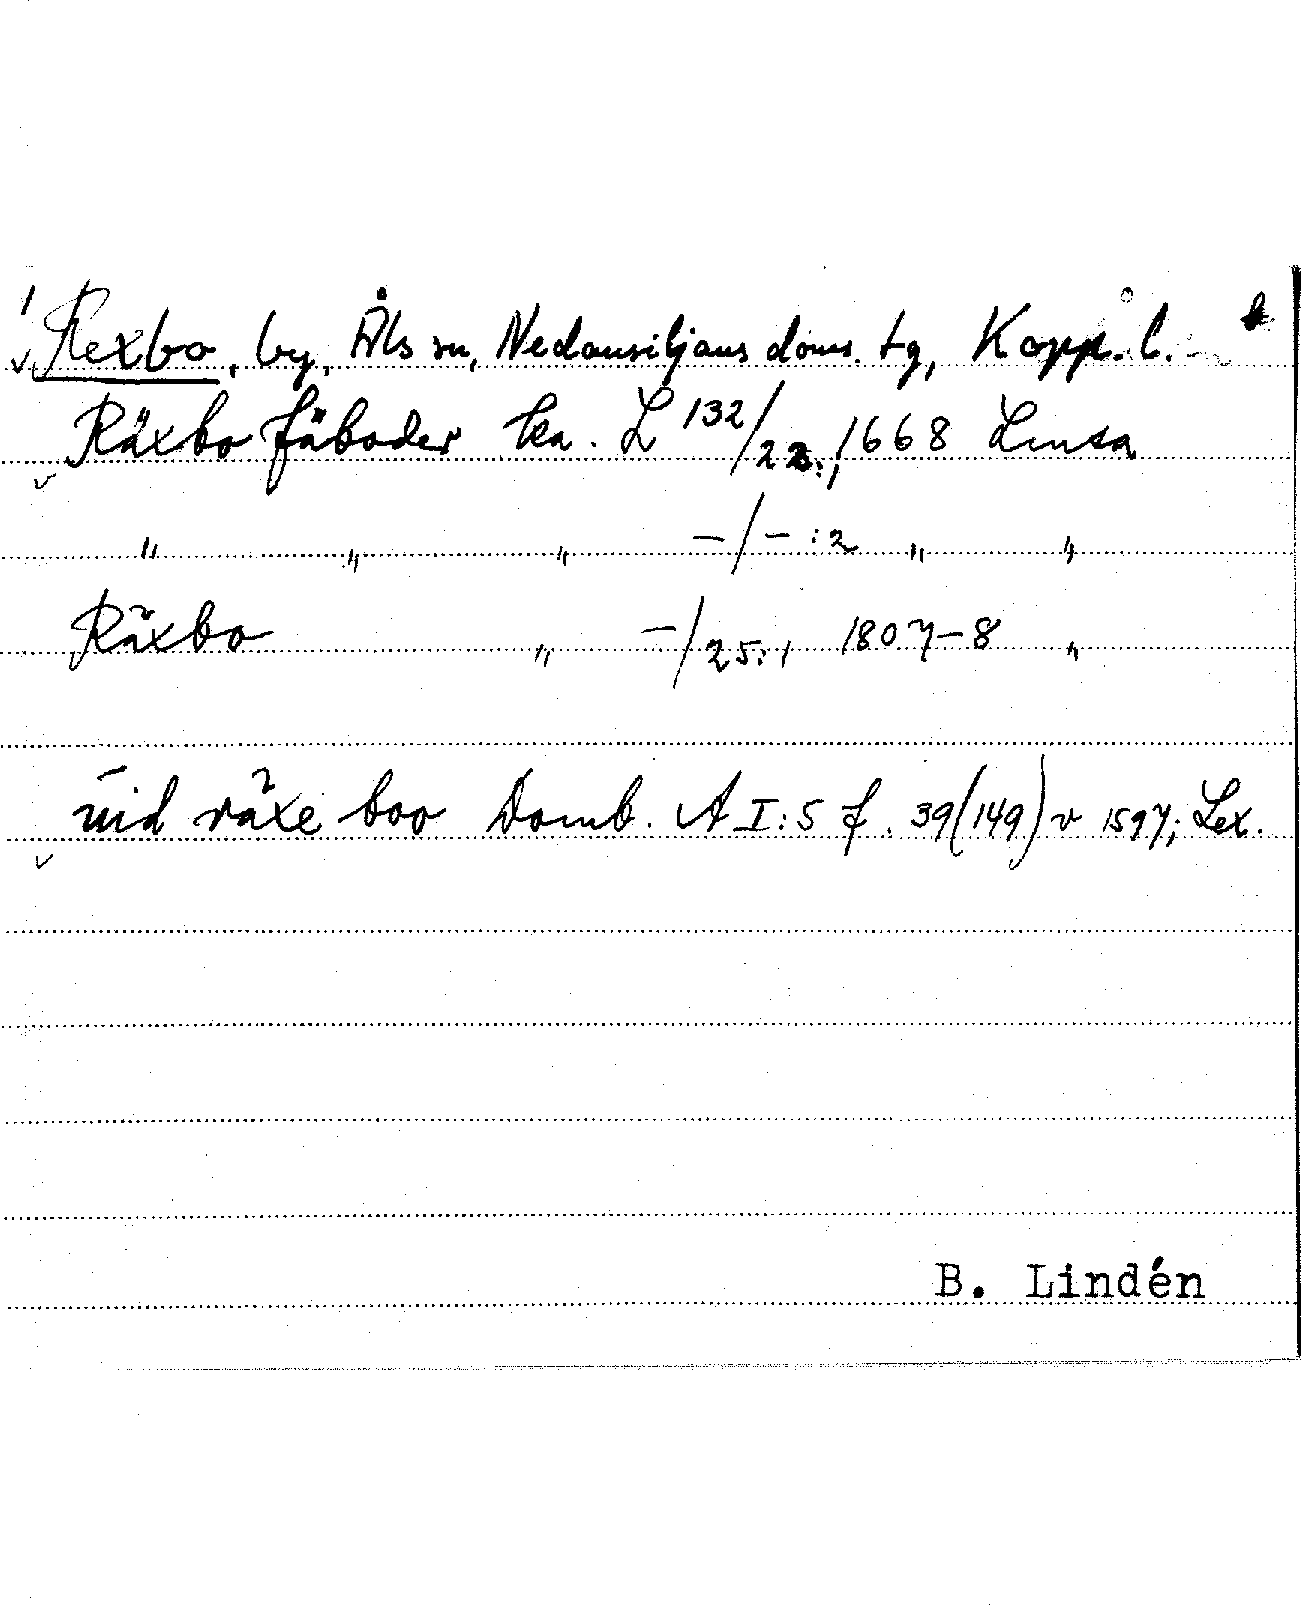 Rexbo, by, Åls sn, Nedansiljans doms. tg, Kopp. l.
Räxbo fäboder ka. L 132/22:1 1668 Lmsa
" " " -/- :2 " "
Räxbo " -/25:1 1807-8 "
uid räxe boo Domb. A I:5 f. 39(149) v 1597; Lex.
B. Lindén